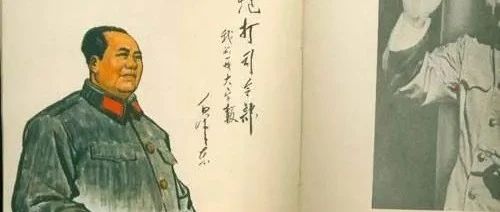 炮打司令部
我的一张大字报
毛泽东